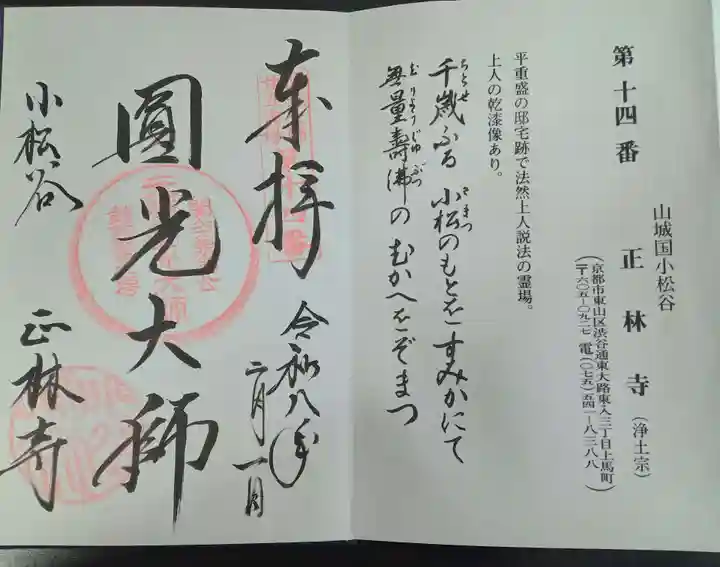 第十四番
山城国小松谷
正林寺(浄土宗)
(京都市東山区渋谷通東大路東入三丁目上馬町
〒六〇五-〇九二七 電(〇七五)五四一-八三八八)
平重盛の邸宅跡で法然上人説法の霊場。
上人の乾漆像あり。
千歳ふる 小松のもとを すみかにて
無量壽佛の むかへをぞまつ
奉拝
令和八年
二月一日
圓光大師
小松谷
正林寺